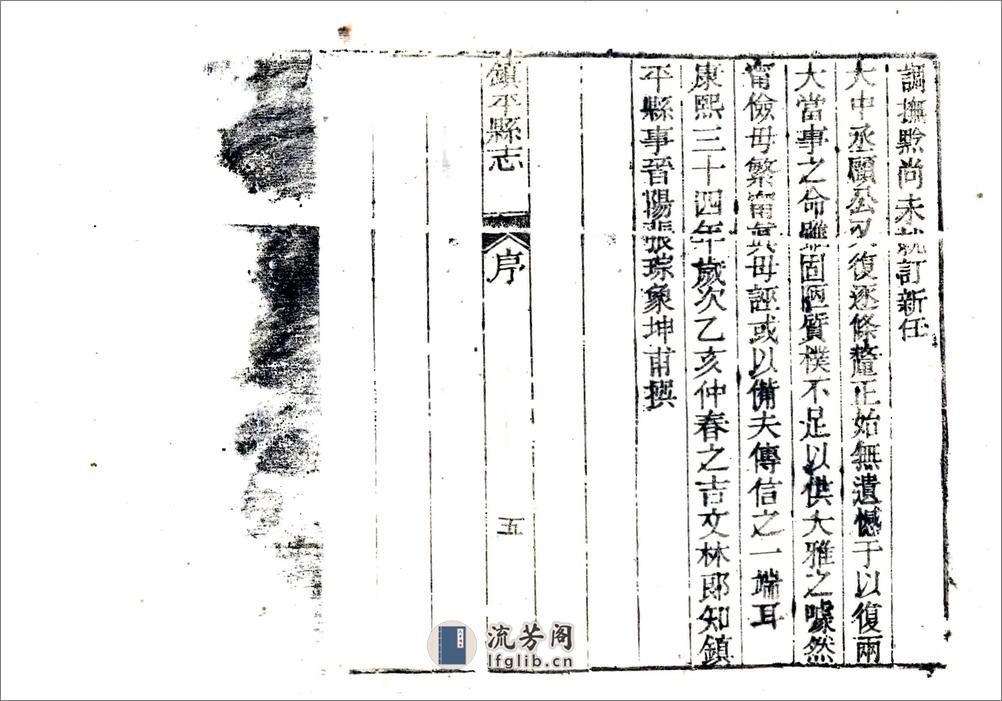 調撫黔尚未就訂新任
大中丞顧公又復逐條釐正始無遺憾于以復兩
大當事之命雖固陋質樸不足以供大雅之噱然
甯儉毋繁甯眞毋誣或以備夫傳信之一端耳
康熙三十四年歲次乙亥仲春之吉文林郎知鎮
平縣事晉陽張琮象坤甫撰
鎮平縣志
序
五
流芳阁
lfglib.cn